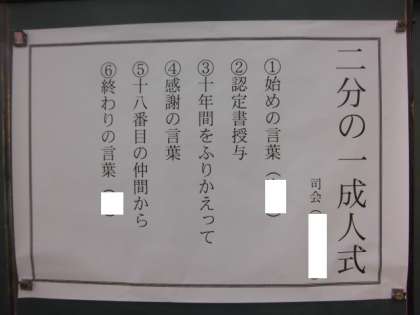 二分の一成人式
司会（　　　）
①始めの言葉（　　）
②認定書授与
③十年間をふりかえって
④感謝の言葉
⑤十八番目の仲間から
⑥終わりの言葉（　　）